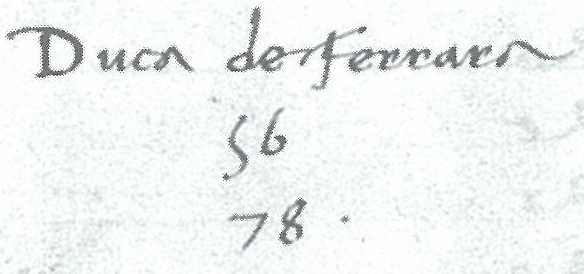 Duca de Ferrara
56
78.